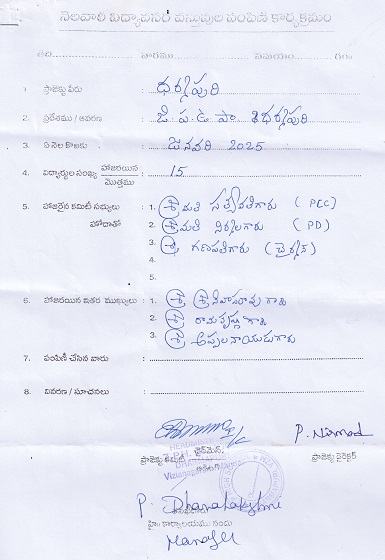 నెలవారీ విద్యావసర వస్తువుల పంపిణీ కార్యక్రమం
తేది: వారము: సమయం: గం॥
1. ప్రాజెక్టు పేరు : ధర్మపురి
2. ప్రదేశము / ఆవరణ : జి.ప.ఉ.పా. ధర్మపురి
3. ఏ నెల కొఱకు : జనవరి 2025
4. విద్యార్థుల సంఖ్య హాజరయిన / మొత్తము : 15
5. హాజరైన కమిటీ సభ్యులు హోదాతో : 1. శ్రీమతి సత్యవతిగారు (PCC)
2. శ్రీమతి నిర్మలగారు (PD)
3. శ్రీ గణపతిగారు (చైర్మన్)
4.
5.
6. హాజరయిన ఇతర ముఖ్యులు : 1. శ్రీ శ్రీనివాసరావు గారు
2. శ్రీ రామకృష్ణ గారు
3. శ్రీ అప్పలనాయుడుగారు
7. పంపిణీ చేసిన వారు :
8. వివరణ / సూచనలు :
P. Nirmal
ప్రాజెక్టు కమిటీ ఛైర్మెన్: ప్రాజెక్టు డైరెక్టర్
P. Dhanalakshmi
హైం కార్యాలయము నందు
Manager